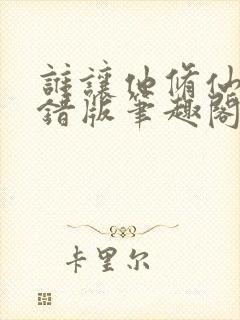 誰讓他脩仙
錯版筆趣閣
卡里尔